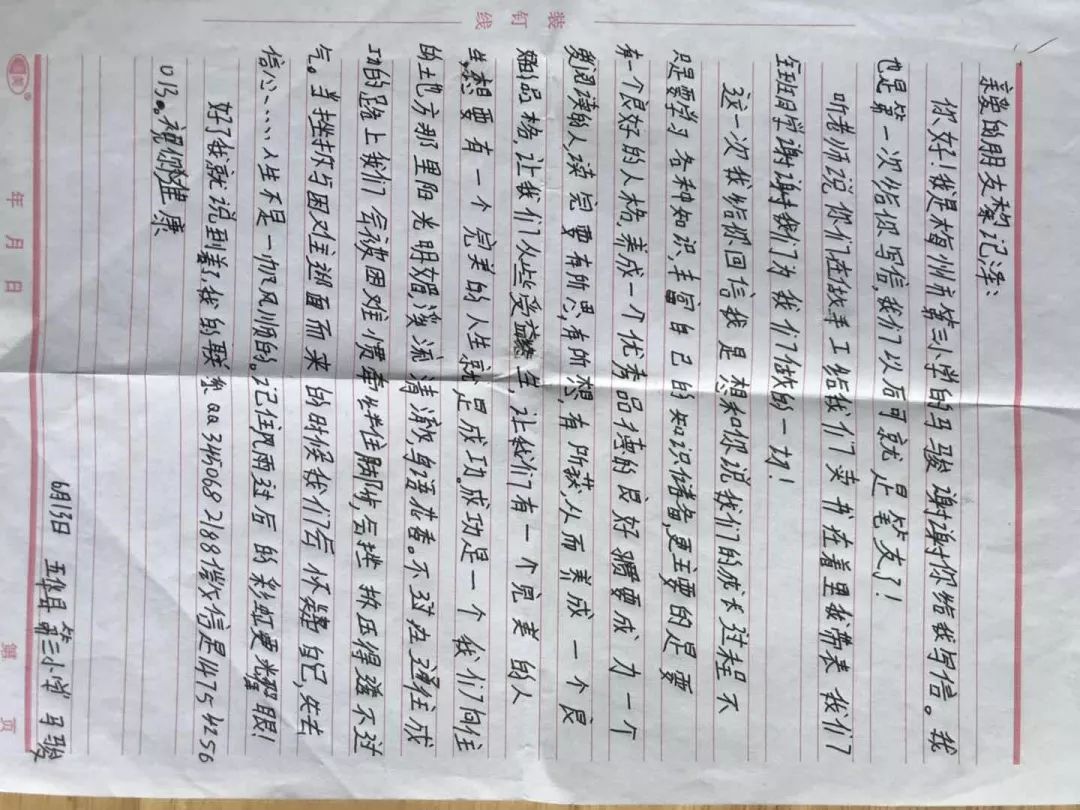 装订线
亲爱的朋友黎记泽：
你好！我是梅州市第三小学的马骏谢谢你给我写信。我
也是第一次给你写信，我们以后可就是笔友了！
听老师说你们在做手工给我们卖书在着里我带表我们
全班同学谢谢我们为我们做的一切！
这一次我给你回信我是想和你说我们的成长过程不
只是要学习各种知识，丰富自己的知识储备，更主要的是要
有一个良好的人格，养成一个优秀品德的良好惯要成力一个
阅读的人读完要有所思，有所想，有所获，从而养成一个良
品格，让我们从些受益终生，让我们有一个完美的人
生，想要有一个完美的人生就是成功。成功是一个我们向往
的土地方那里阳光明媚，溪流清澈，鸟语花香。不过在通往成
功的路上我们会被困难惯牵绊住脚步，会挫折压得透不过
气。当挫折与困难迎面而来的时候我们会怀疑自己，失去
信心……人生不是一帆风顺的。记住风雨过后的彩虹更光耀眼！
好了我就说到着了，我的联系qq3460682188微信是14754256
018。祝你健康
6月13日 五华县第三小学 马骏
年 月 日
第 页